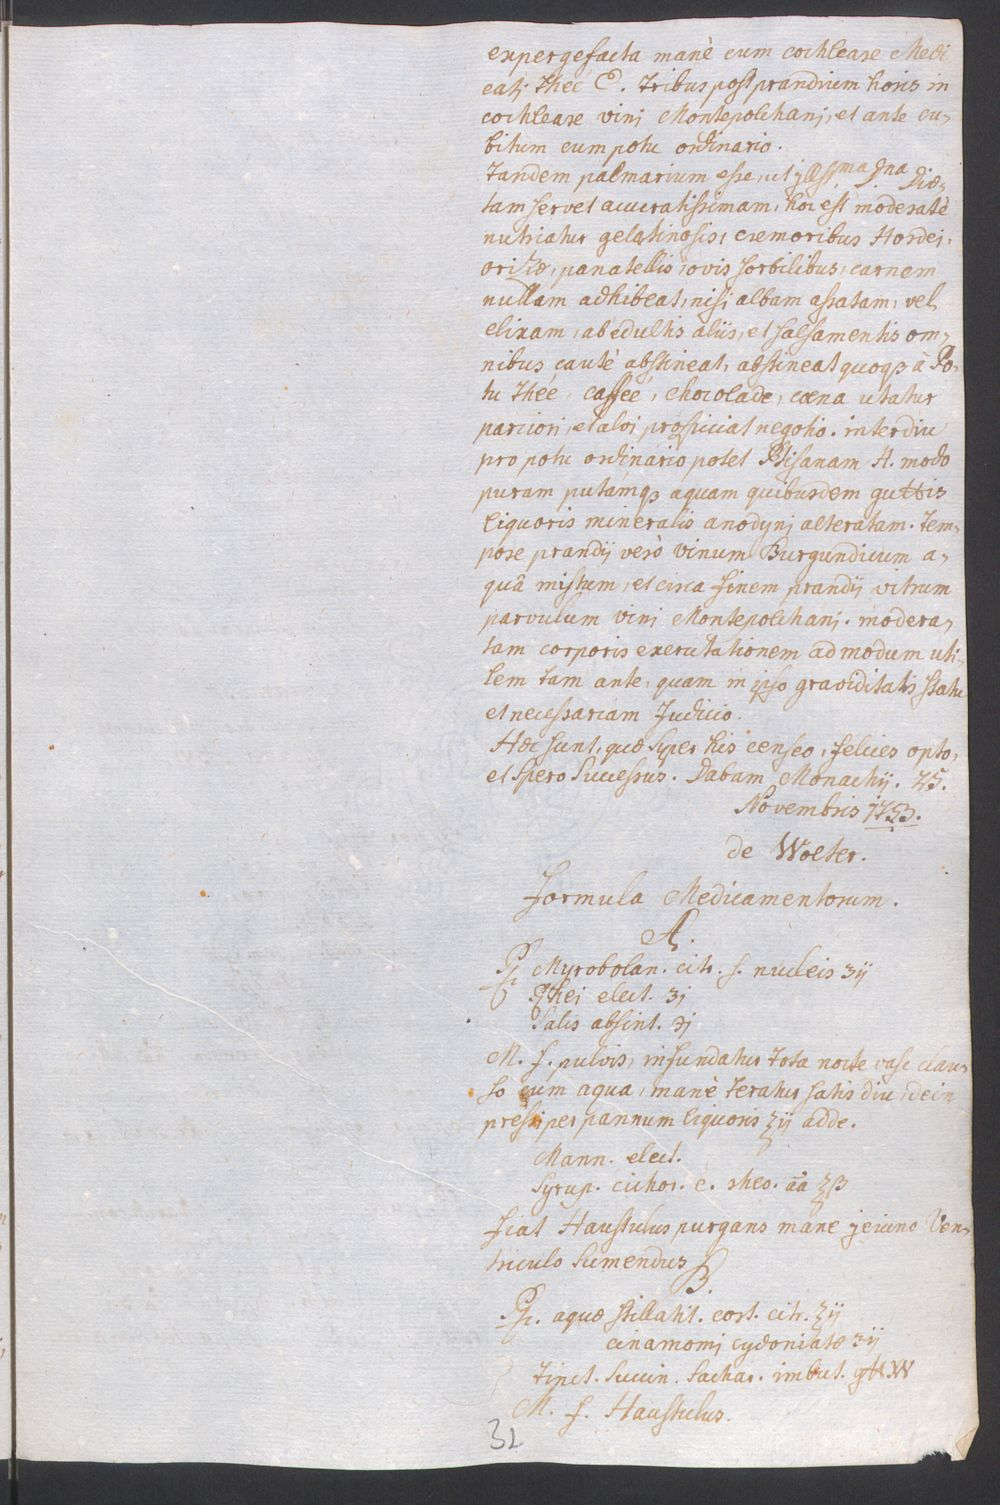 expergefacta manè cum cochleare Medi
catj Theé C. Tribus post prandium horis in
cochleare vinj Montepolchanj, et ante cu-
bitum cum potu ordinario.
Tandem palmarium esse, ut Diæ-
tam servet accuratissimam, hoc est moderatè
nutriatur gelatinosis, cremoribus Hordei,
orizæ, panatellis, ovis sorbilibus, carnem
nullam adhibeat, nisi albam assatam, vel
elixam, ab edultis aliis, et salsamentis om-
nibus cautè abstineat, abstineat quoqꝫ à Po-
tu Theé, Caffeé, Chocolade, cœna utatur
parciori, et alvi prospiciat negotio. interdiu
pro potu ordinario potet Ptisanam H. modo
puram putamqꝫ aquam quibusdem guttis
Liquoris mineralis anodynj alteratam. Tem-
pore prandij verò vinum Burgundicum a-
quâ mistum, et circa finem prandij vitrum
parvulum vini Montepolchanj. modera-
tam corporis exercitationem admodum uti-
lem tam ante, quam in ipso graviditatis statu
et necessariam Judicio.
Hæc sunt, quæ super his censeo, felices opto,
et spero Successus. Dabam Monachij. 25.
Novembris 1753.
de Wolter.
Formula Medicamentorum.
A.
Rp. Myrobolan. citr. s. nucleis ʒij
Rhei elect. ʒj
Salis absint. ℈j
M. f. pulvis, infundatur tota nocte vase clau-
so cum aqua, manè teratur satis diu, dein
pressi per pannum Liquoris ℥ij adde.
Mann. elect.
Syrup. cichor. c. rheo. aa ℥β
fiat Haustulus purgans mane jejuno Ven-
triculo Sumendus
B.
Rp. aquæ stillatit. cort. citr. ℥ij
cinamomj cydoniatæ ʒij
Tinct. Succin. Sachar. imbut.
M. f. Haustulus.
32